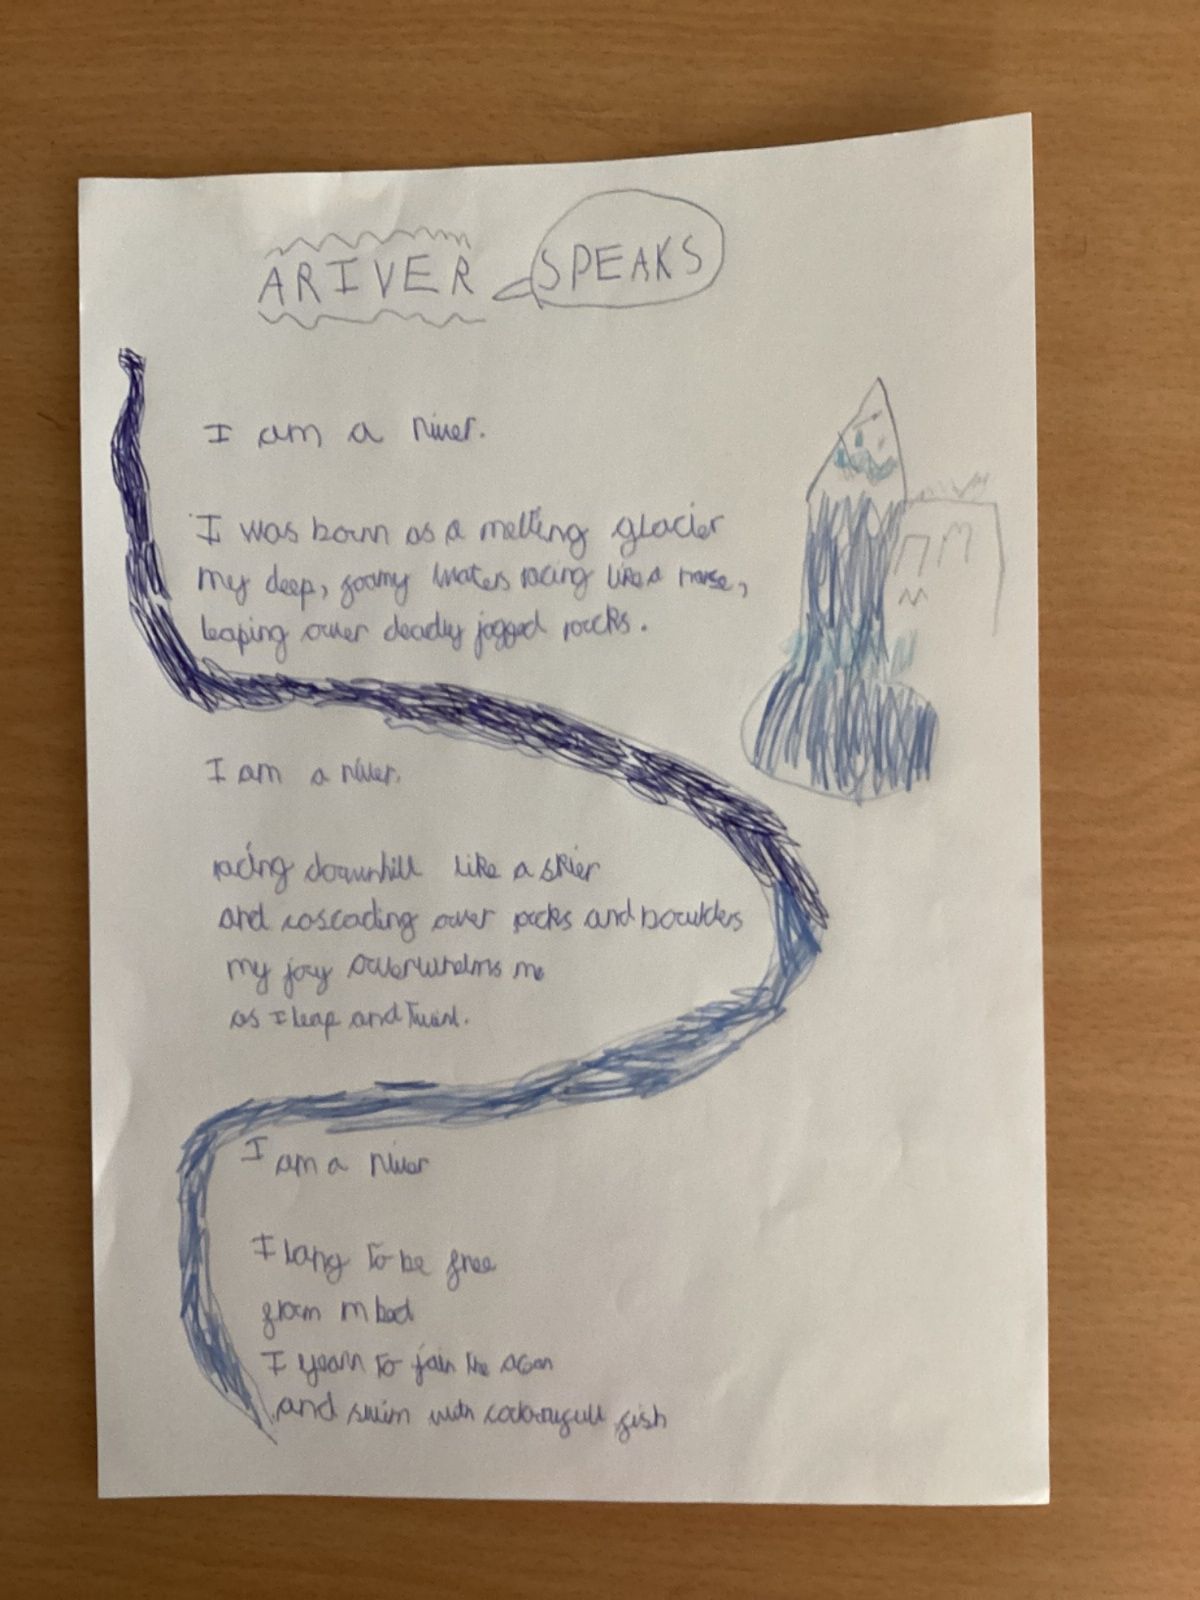 A RIVER SPEAKS
I am a river.
I was born as a melting glacier
my deep, foamy waters racing like a horse,
leaping over deadly jagged rocks.
I am a river.
racing downhill like a skier
and cascading over rocks and boulders
my joy overwhelms me
as I leap and twirl.
I am a river
I long to be free
from m bed
I yearn to join the
and swim with fish